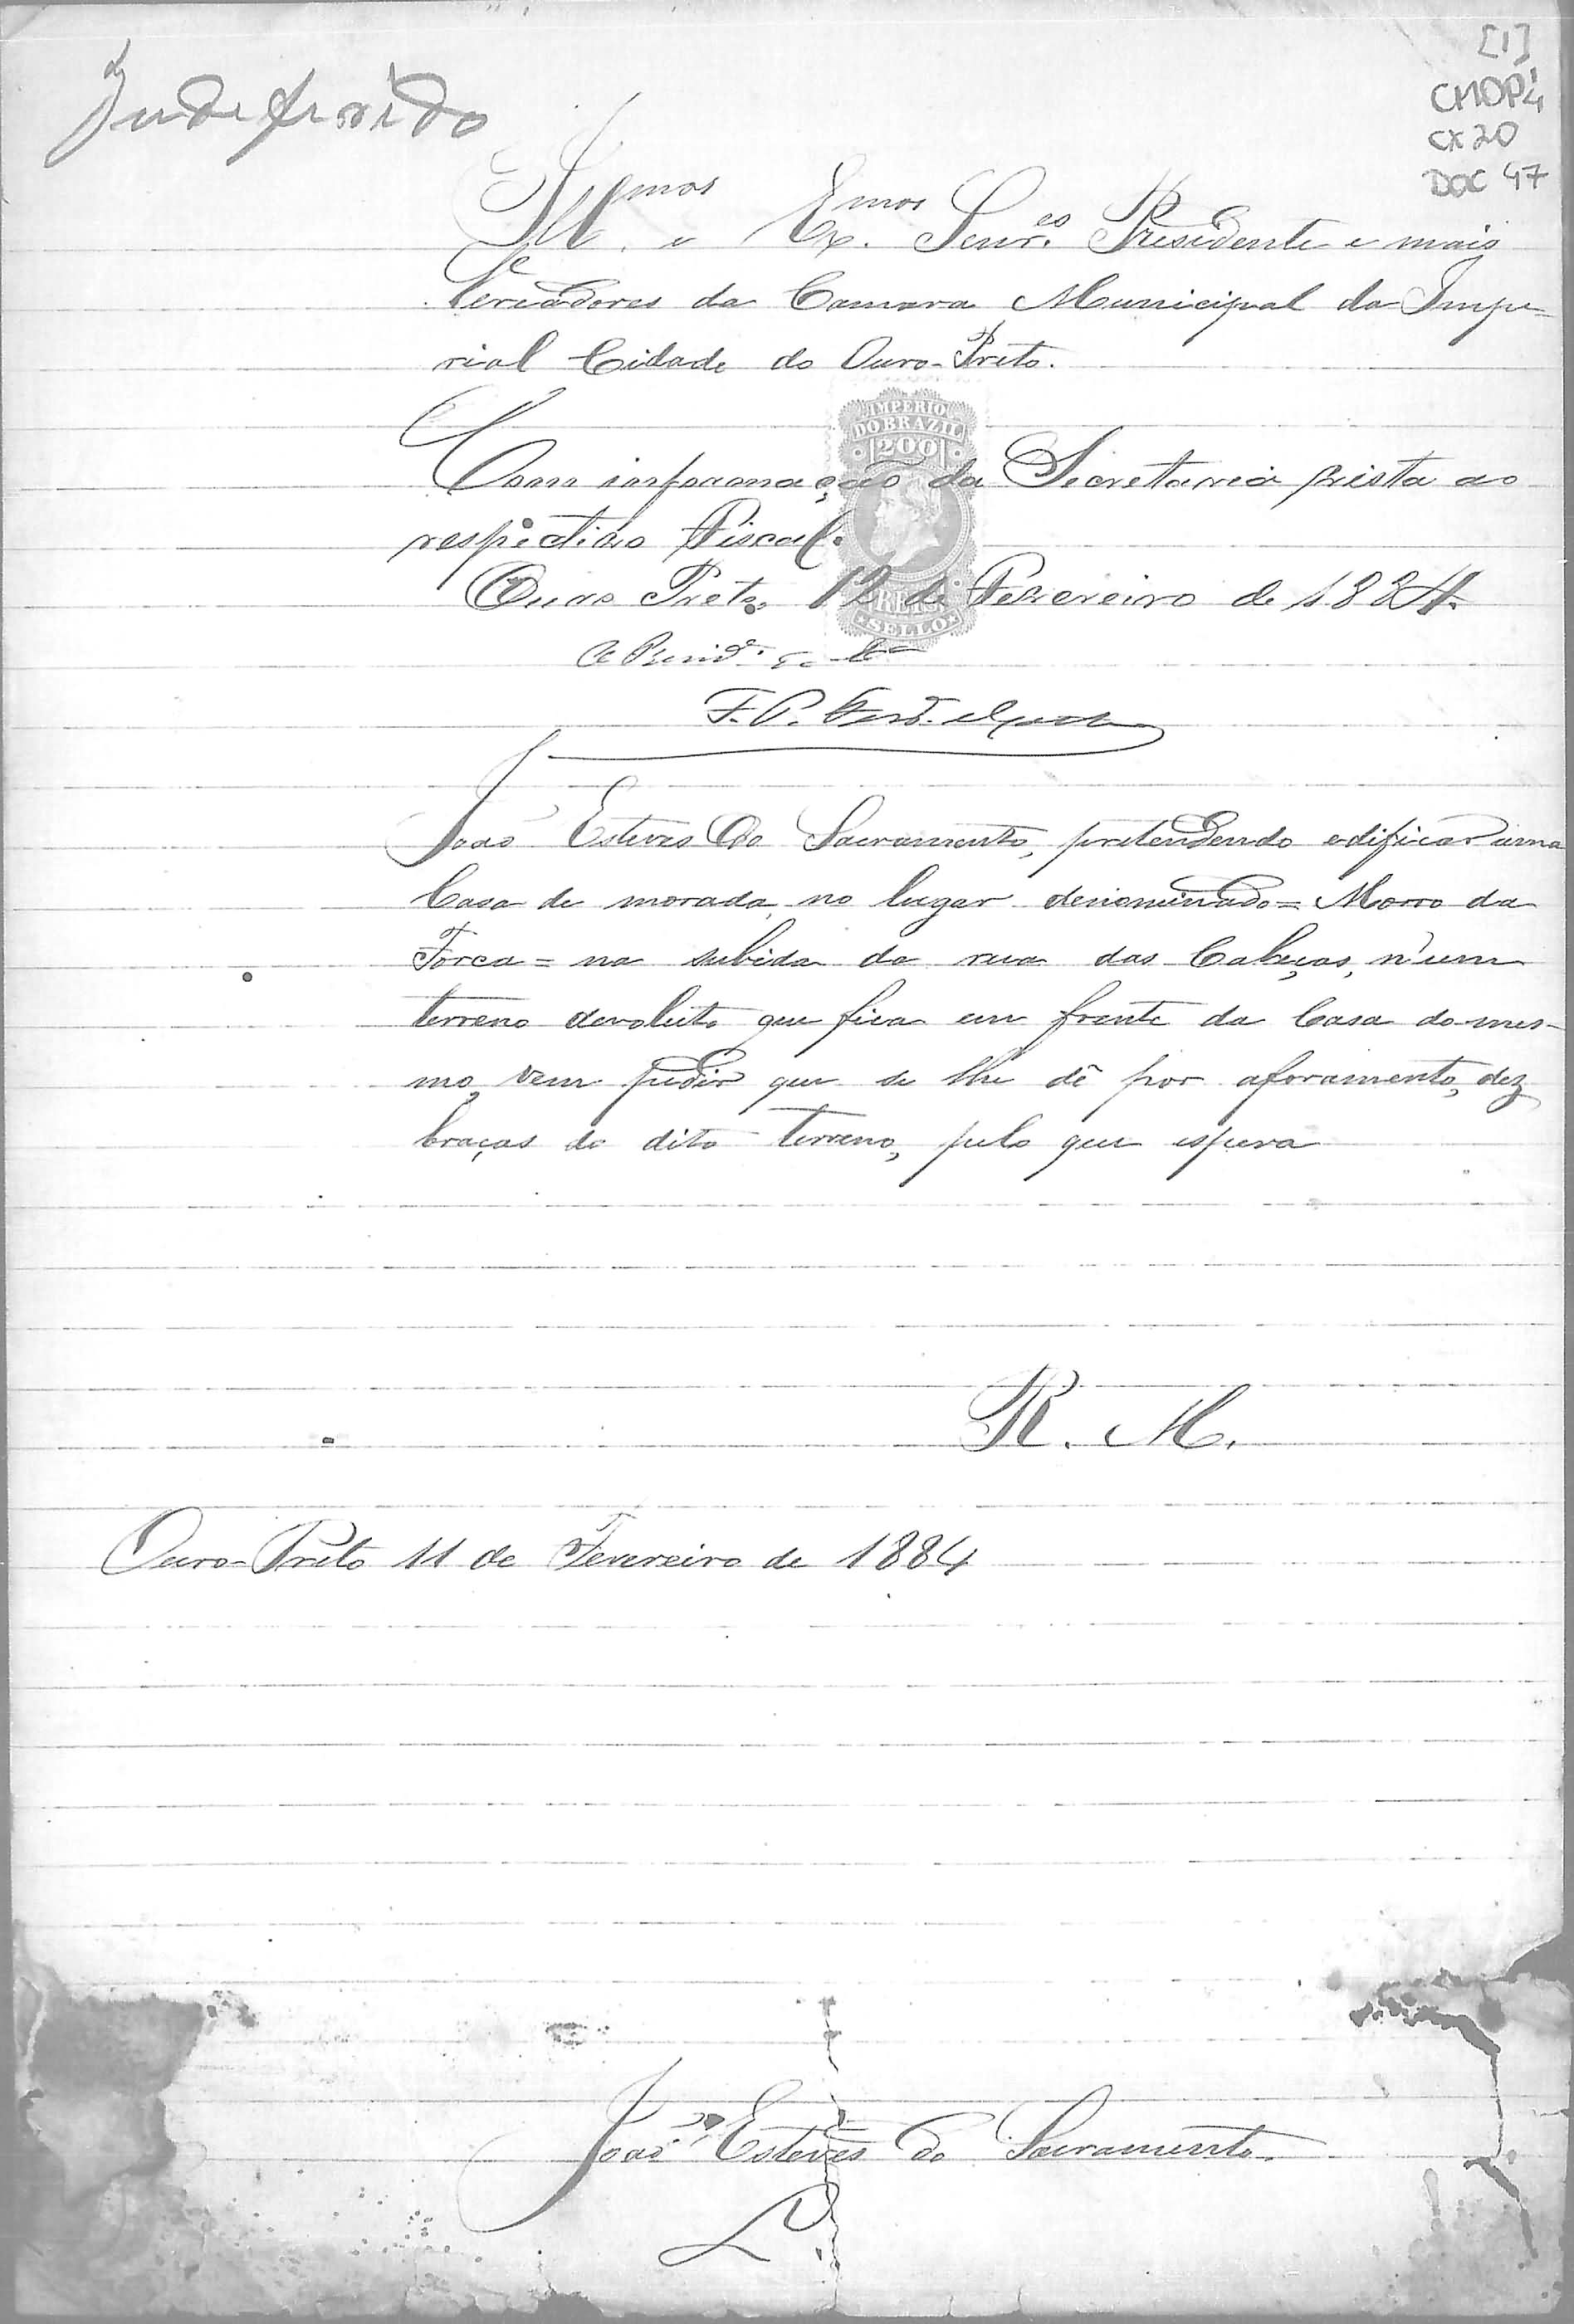 Indeferido
[1]
CMOP 4
CX 20
DOC 47
Ill.mos e Ex.mos Senr.es Presidente e mais
Vereadores da Camara Municipal da Impe-
rial Cidade do Ouro-Preto.
IMPERIO
DO BRAZIL
200
REIS
SELLO
Com informação da Secretaria vista ao
respectivo Fiscal.
Ouro Preto, 12 de Fevereiro de 1884.
O Presid.e da
F. P.
João Esteves do Sacramento, pretendendo edificar uma
Casa de morada, no lugar denominado = Morro da
Forca = na subida da rua das Cabeças, n'um
terreno devoluto que fica em frente da Casa do mes-
mo, vem pedir que se lhe dê por aforamento, dez
braças do dito terreno, pelo que espera
R. M.
Ouro-Preto 11 de Fevereiro de 1884
João Esteves do Sacramento.